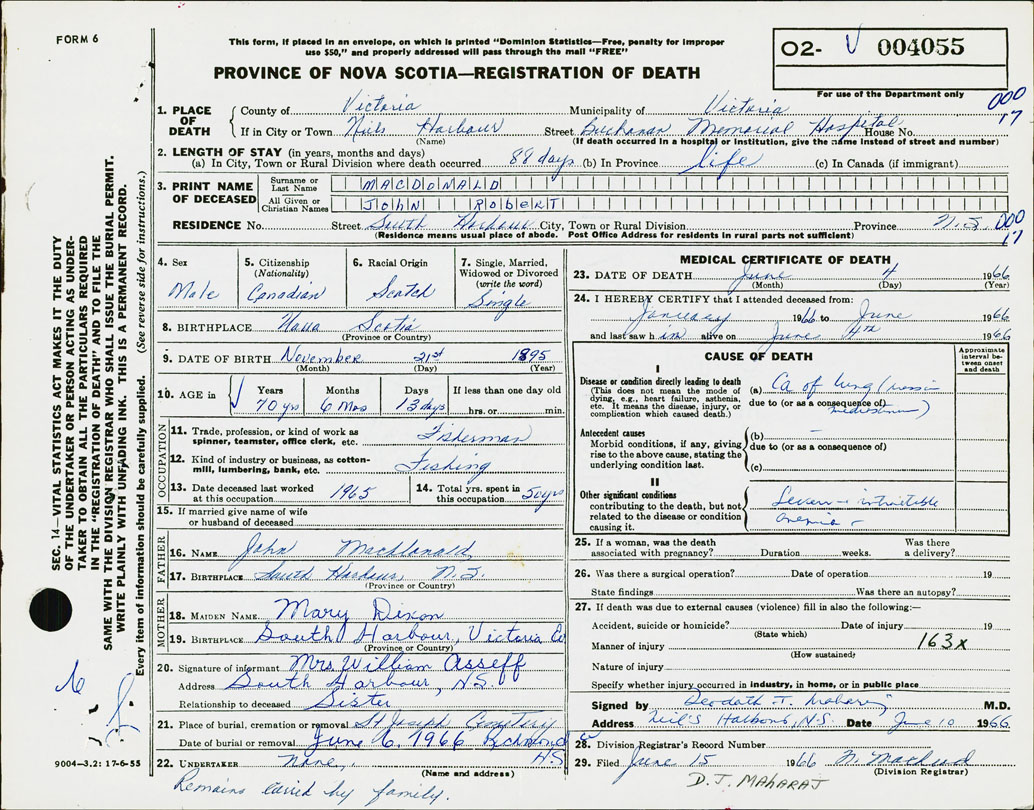 FORM 6
This form, if placed in an envelope, on which is printed "Dominion Statistics—Free, penalty for improper
use $50," and properly addressed will pass through the mail "FREE"
PROVINCE OF NOVA SCOTIA—REGISTRATION OF DEATH
O2- V 004055
For use of the Department only
000
17
1. PLACE OF DEATH
County of Victoria Municipality of Victoria
If in City or Town Neils Harbour Street Buchanan Memorial Hospital House No.
(Name) (If death occurred in a hospital or institution, give the name instead of street and number)
2. LENGTH OF STAY (in years, months and days)
(a) In City, Town or Rural Division where death occurred 88 days (b) In Province life (c) In Canada (if immigrant)
3. PRINT NAME OF DECEASED
Surname or Last Name MACDONALD
All Given or Christian Names JOHN ROBERT
RESIDENCE No. Street South Harbour City, Town or Rural Division Province N.S. 000
17
(Residence means usual place of abode. Post Office Address for residents in rural parts not sufficient)
4. Sex
Male
5. Citizenship
(Nationality)
Canadian
6. Racial Origin
Scotch
7. Single, Married,
Widowed or Divorced
(write the word)
Single
8. BIRTHPLACE Nova Scotia
(Province or Country)
9. DATE OF BIRTH November 21st 1895
(Month) (Day) (Year)
10. AGE in
Years Months Days If less than one day old
70 yrs 6 Mos 13 days hrs. or min.
OCCUPATION
11. Trade, profession, or kind of work as
spinner, teamster, office clerk, etc. Fisherman
12. Kind of industry or business, as cotton-
mill, lumbering, bank, etc. Fishing
13. Date deceased last worked
at this occupation 1965
14. Total yrs. spent in
this occupation 50 yrs
15. If married give name of wife
or husband of deceased
FATHER
16. NAME John MacDonald
17. BIRTHPLACE South Harbour, N.S.
(Province or Country)
MOTHER
18. MAIDEN NAME Mary Dixon
19. BIRTHPLACE South Harbour, Victoria Co
(Province or Country)
20. Signature of informant Mrs. William Asseff
Address South Harbour, N.S.
Relationship to deceased Sister
21. Place of burial, cremation or removal St Joseph Cemetery
Date of burial or removal June 6, 1966
N.S
22. UNDERTAKER None,
(Name and address)
Remains by family.
MEDICAL CERTIFICATE OF DEATH
23. DATE OF DEATH June 4 1966
(Month) (Day) (Year)
24. I HEREBY CERTIFY that I attended deceased from:
January 1966 to June 1966
and last saw him alive on June 4th 1966
CAUSE OF DEATH
Approximate
interval be-
tween onset
and death
I
Disease or condition directly leading to death
(This does not mean the mode of
dying, e.g., heart failure, asthenia,
etc. It means the disease, injury, or
complication which caused death.)
(a) Ca of lung
due to (or as a consequence of)
Antecedent causes
Morbid conditions, if any, giving
rise to the above cause, stating the
underlying condition last.
(b) —
due to (or as a consequence of)
(c)
II
Other significant conditions
contributing to the death, but not
related to the disease or condition
causing it.
Severe - intractible
anemia -
25. If a woman, was the death
associated with pregnancy? Duration weeks. Was there
a delivery?
26. Was there a surgical operation? Date of operation 19
State findings Was there an autopsy?
27. If death was due to external causes (violence) fill in also the following:—
Accident, suicide or homicide? Date of injury 19
(State which)
Manner of injury 163X
(How sustained)
Nature of injury
Specify whether injury occurred in industry, in home, or in public place
Signed by Deodath J. Maharaj M.D.
Address Neil's Harbour, N.S. Date June 10 1966
28. Division Registrar's Record Number
29. Filed June 15 1966 N. MacLeod
(Division Registrar)
D. J. MAHARAJ
SEC. 14—VITAL STATISTICS ACT MAKES IT THE DUTY
OF THE UNDERTAKER OR PERSON ACTING AS UNDER-
TAKER TO OBTAIN ALL THE PARTICULARS REQUIRED
IN THE "REGISTRATION OF DEATH" AND TO FILE THE
SAME WITH THE DIVISION REGISTRAR WHO SHALL ISSUE THE BURIAL PERMIT.
WRITE PLAINLY WITH UNFADING INK. THIS IS A PERMANENT RECORD.
Every item of information should be carefully supplied. (See reverse side for instructions.)
9004—3.2: 17-6-55